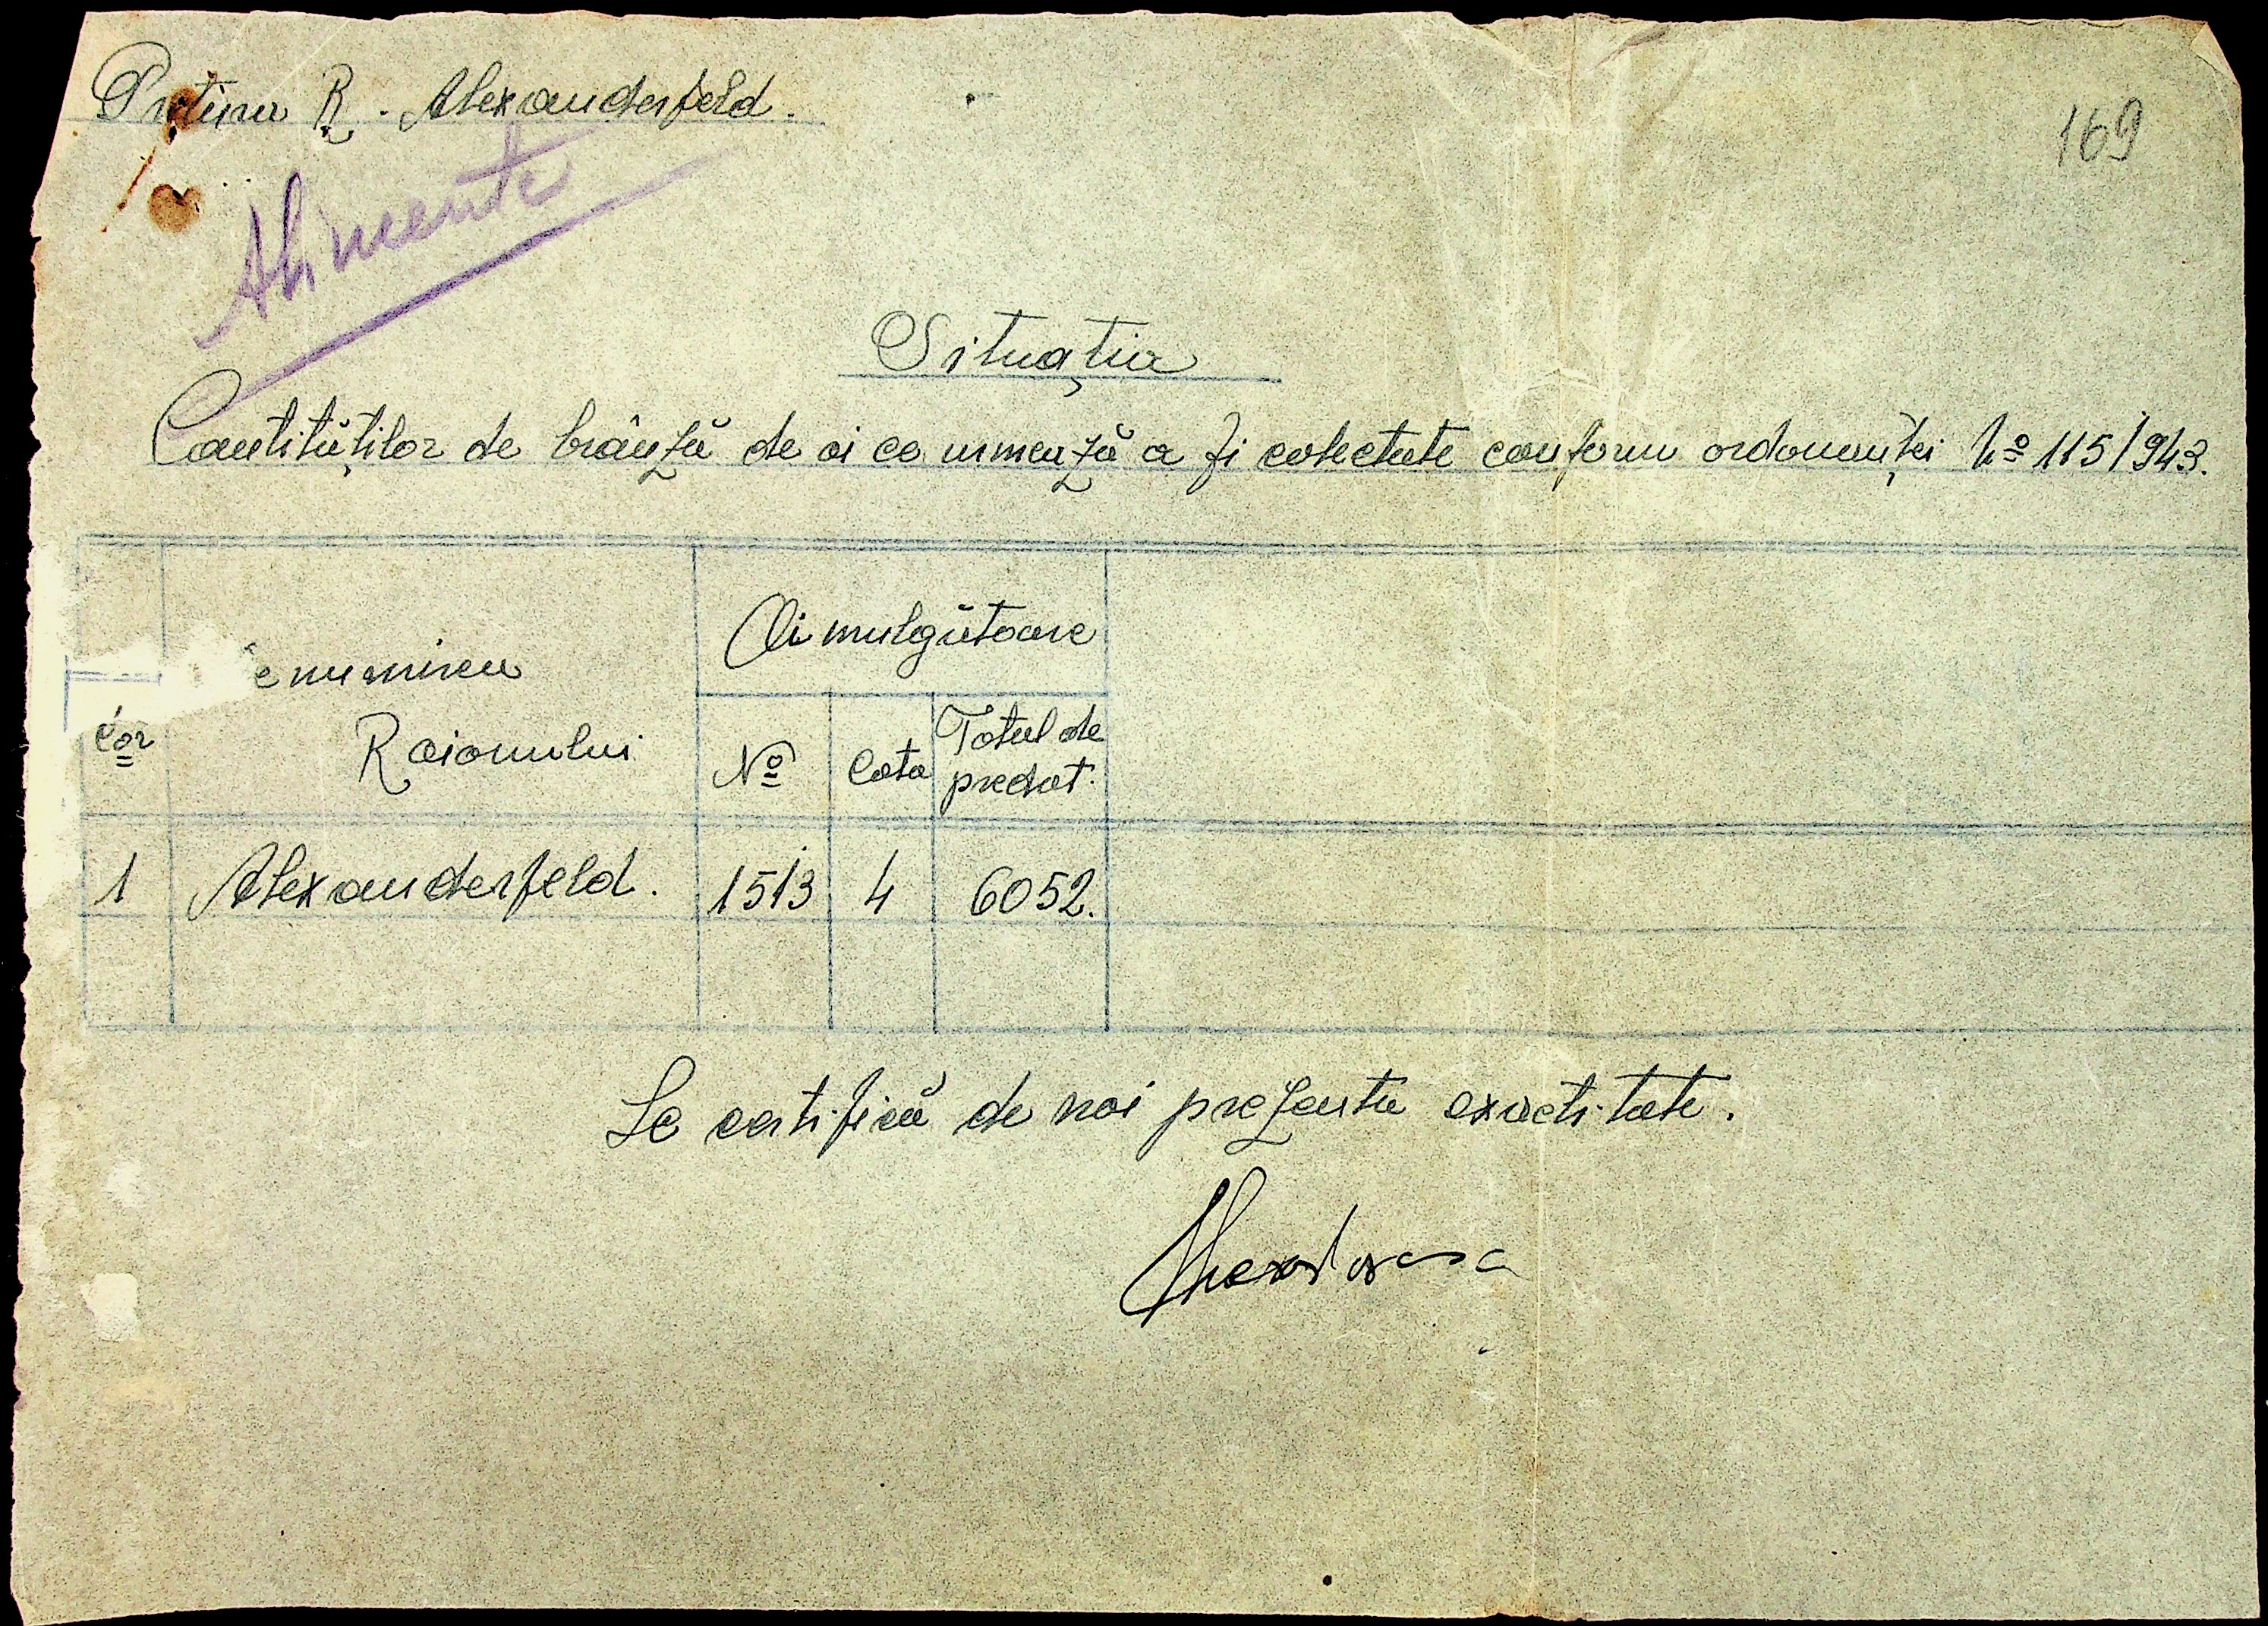 Pretura R. Alexanderfeld.
169
Alimente
Situația
Cantităților de brânză de oi ce urmează a fi colectate conform ordonanței No 115/943.
enumirea
Raionului
cor
Oi mulgătoare
No
Cota
Totul de
predat.
1 Alexanderfeld. 1513 4 6052.
Se certifică de noi prezenta exactitate.